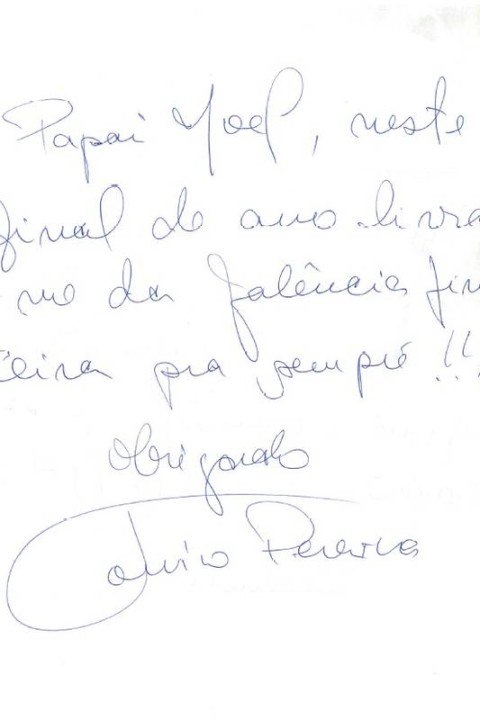 Papai Noel, neste
final do ano livra
me da falência fin
ceira pra sempre!!!
Obrigado
Pereira